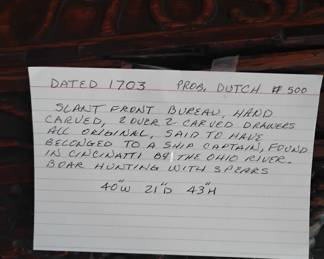 DATED 1703 PROB. DUTCH # 500
SLANT FRONT BUREAU, HAND
CARVED, 2 OVER 2 CARVED DRAWERS
ALL ORIGINAL, SAID TO HAVE
BELONGED TO A SHIP CAPTAIN, FOUND
IN CINCINATTI BY THE OHIO RIVER.
BOAR HUNTING WITH SPEARS
40"W 21"D 43"H